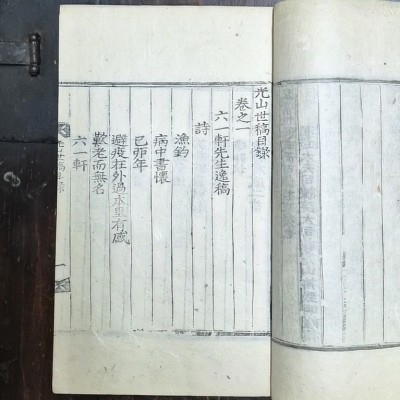 光山世稿目錄
卷之一
六一軒先生逸稿
詩
漁釣
病中書懷
己卯年
避疫在外過本里有感
歎老而無名
六一軒
光山世稿目錄
一